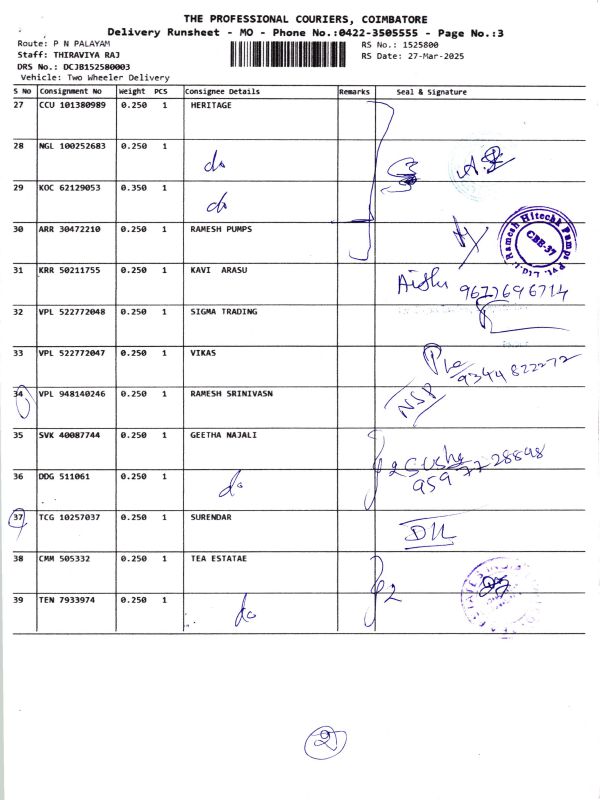 THE PROFESSIONAL COURIERS, COIMBATORE
Delivery Runsheet - MO - Phone No.:0422-3505555 - Page No.:3
Route: P N PALAYAM
RS No.: 1525800
Staff: THIRAVIYA RAJ
RS Date: 27-Mar-2025
DRS No.: DCJB152580003
Vehicle: Two Wheeler Delivery
S No Consignment No Weight PCS Consignee Details Remarks Seal & Signature
27 CCU 101380989 0.250 1 HERITAGE
28 NGL 100252683 0.250 1 do
29 KOC 62129053 0.350 1 do
30 ARR 30472210 0.250 1 RAMESH PUMPS
Ramesh Hitechh Pumps Pvt. Ltd.
CBE-37
31 KRR 50211755 0.250 1 KAVI ARASU Aishu 9677696714
32 VPL 522772048 0.250 1 SIGMA TRADING
33 VPL 522772047 0.250 1 VIKAS 9344822272
34 VPL 948140246 0.250 1 RAMESH SRINIVASN NSP
35 SVK 40087744 0.250 1 GEETHA NAJALI 2 Susha
36 DDG 511061 0.250 1 do 959 77 28898
37 TCG 10257037 0.250 1 SURENDAR
38 CMM 505332 0.250 1 TEA ESTATAE 2
39 TEN 7933974 0.250 1 do
2